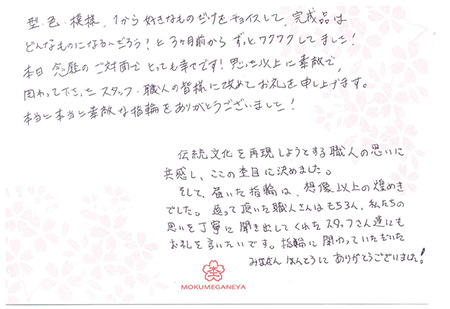 型、色、模様、1から好きなものだけをチョイスして、完成品は
どんなものになるんだろう?と3ヶ月前からずっとワクワクしてました!
本日念願のご対面でとっても幸せです!思った以上に素敵で、
関わって下さったスタッフ・職人の皆様に改めてお礼を申し上げます。
本当に本当に素敵な指輪をありがとうございました!
伝統文化を再現しようとする職人の思いに
共感し、ここの杢目に決めました。
そして、届いた指輪は、想像以上の煌めき
でした。造って頂いた職人さんはもちろん、私たちの
思いを丁寧に聞き出してくれたスタッフさん達にも
お礼を言いたいです。指輪に関わっていただいた
みなさん ほんとうに ありがとうございました!
MOKUMEGANEYA